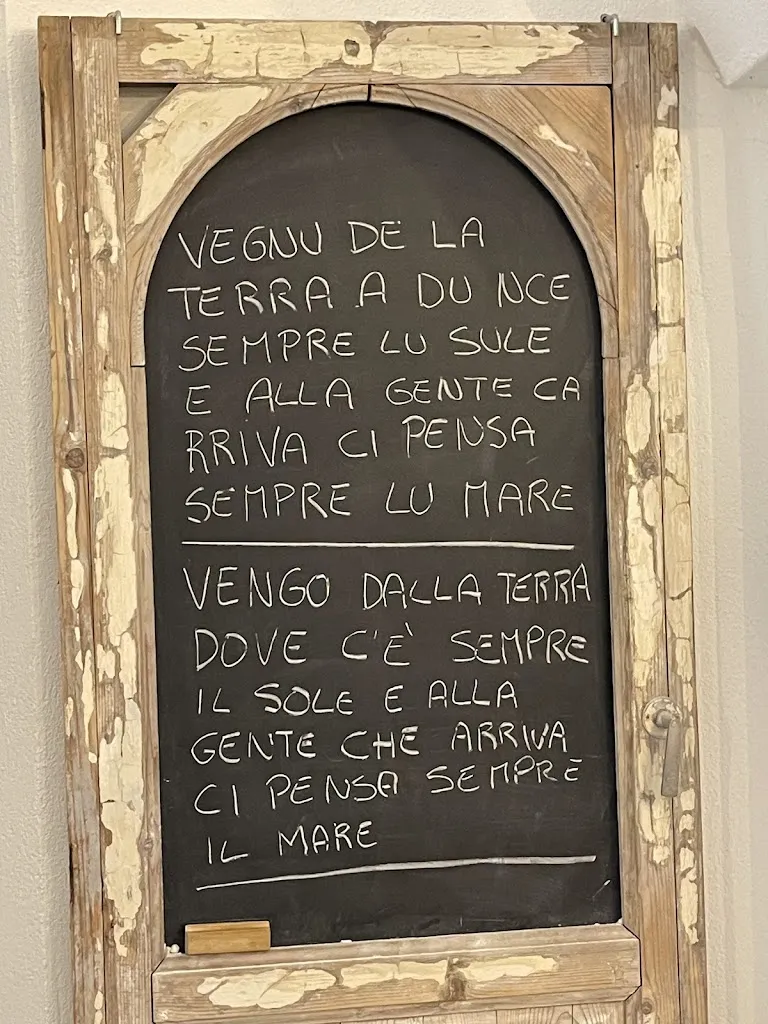 VEGNU DE LA
TERRA A DU NCE
SEMPRE LU SULE
E ALLA GENTE CA
RRIVA CI PENSA
SEMPRE LU MARE
VENGO DALLA TERRA
DOVE C'È SEMPRE
IL SOLE E ALLA
GENTE CHE ARRIVA
CI PENSA SEMPRE
IL MARE